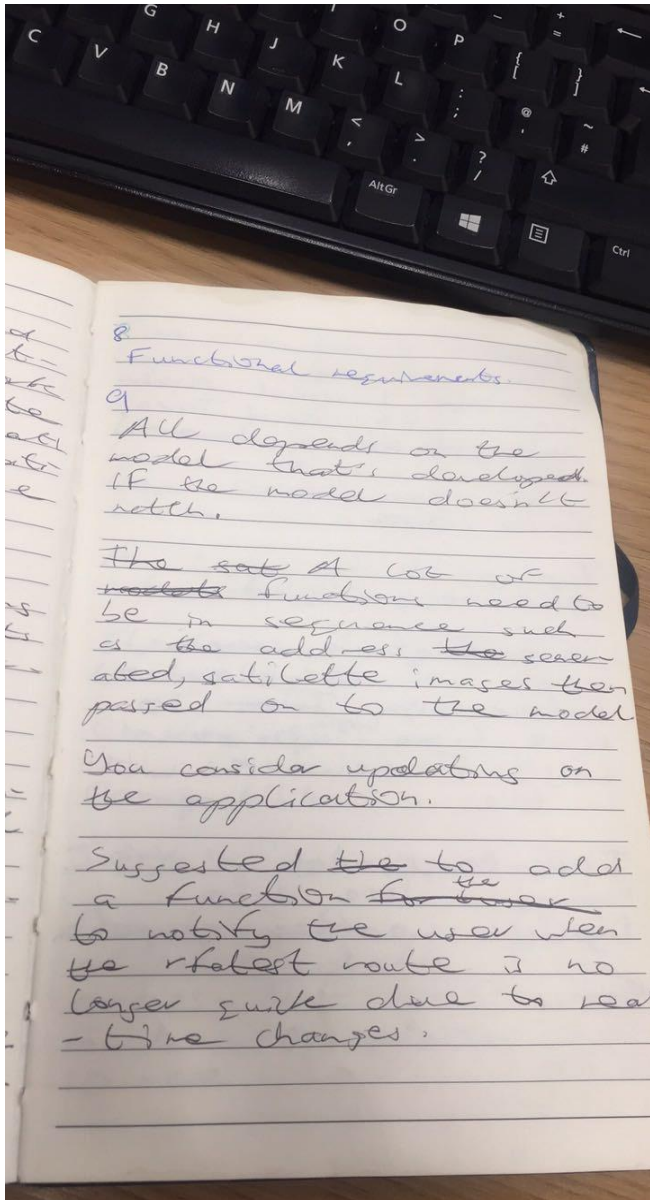 G H J K L O P
C V B N M
AltGr
Ctrl
8
Functional requirements.
9
All depends on the
model that's developed.
If the model doesn't
match.
The sat A lot of
models functions need to
be in sequence such
as the address the gener
ated, satilette images then
passed on to the model
You consider updating on
the application.
Suggested the to add
the
a function for user
to notify the user when
the rfatest route is no
longer quick due to rea
-time changes.